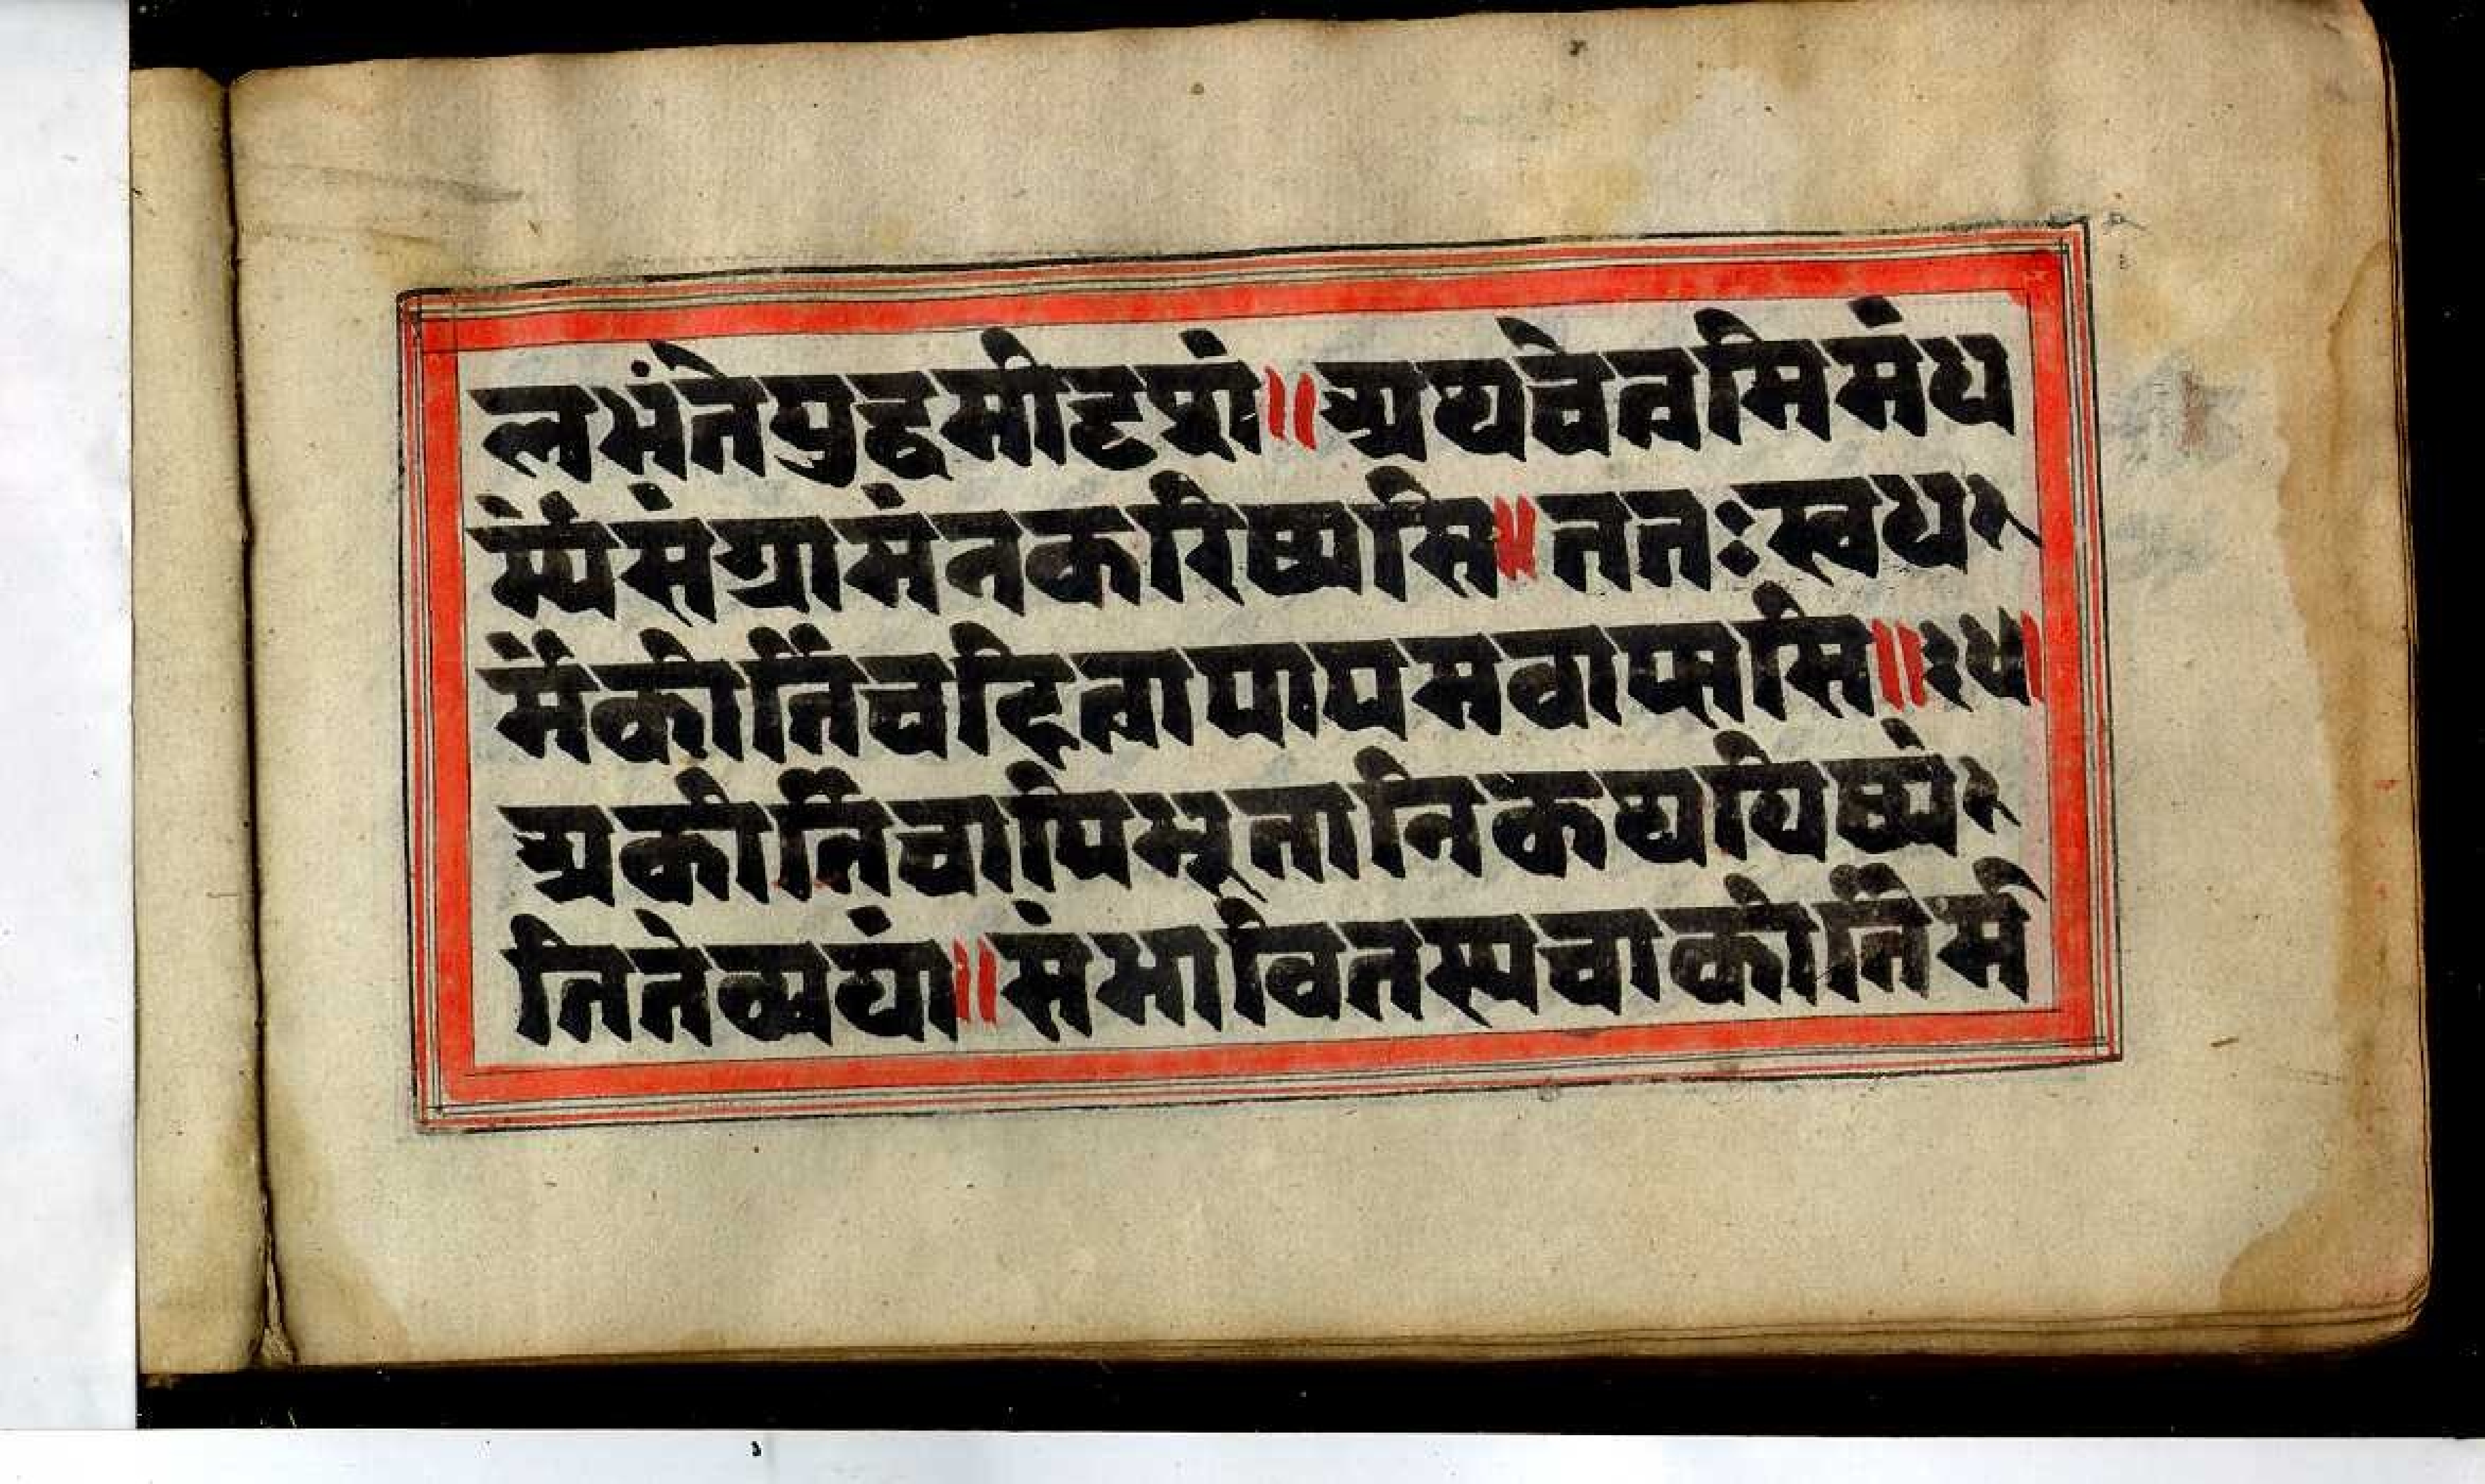 लभंतेयुद्धमीदृशं॥अथचेत्वमिमंध
र्म्यंसंग्रामंनकरिष्यसि॥ततःस्वध
र्मंकीर्तिंचहित्वापापमवाप्स्यसि॥३५॥
अकीर्तिंचापिभूतानिकथयिष्यं
तितेव्ययां॥संभावितस्यचाकीर्तिर्म